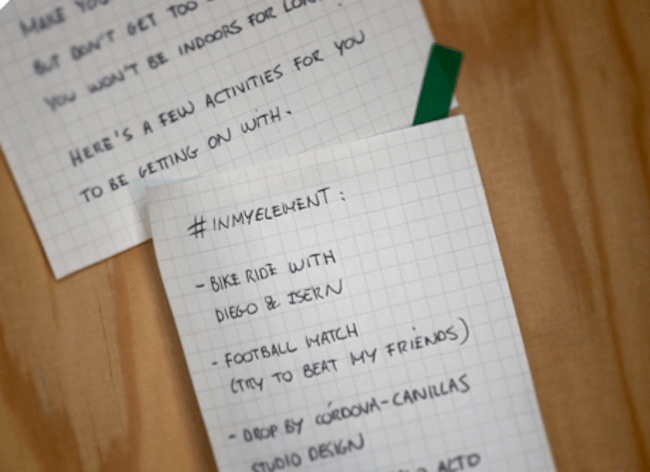 MAKE YOU
BUT DON'T GET TOO
YOU WON'T BE INDOORS FOR LONG.
HERE'S A FEW ACTIVITIES FOR YOU
TO BE GETTING ON WITH.
#INMYELEMENT:
- BIKE RIDE WITH
DIEGO & ISERN
- FOOTBALL MATCH
(TRY TO BEAT MY FRIENDS)
- DROP BY CÓRDOVA-CANILLAS
STUDIO DESIGN
ACTO